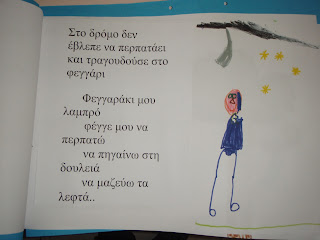 Στο δρόμο δεν
έβλεπε να περπατάει
και τραγουδούσε στο
φεγγάρι
Φεγγαράκι μου
λαμπρό
φέγγε μου να
περπατώ
να πηγαίνω στη
δουλειά
να μαζεύω τα
λεφτά..